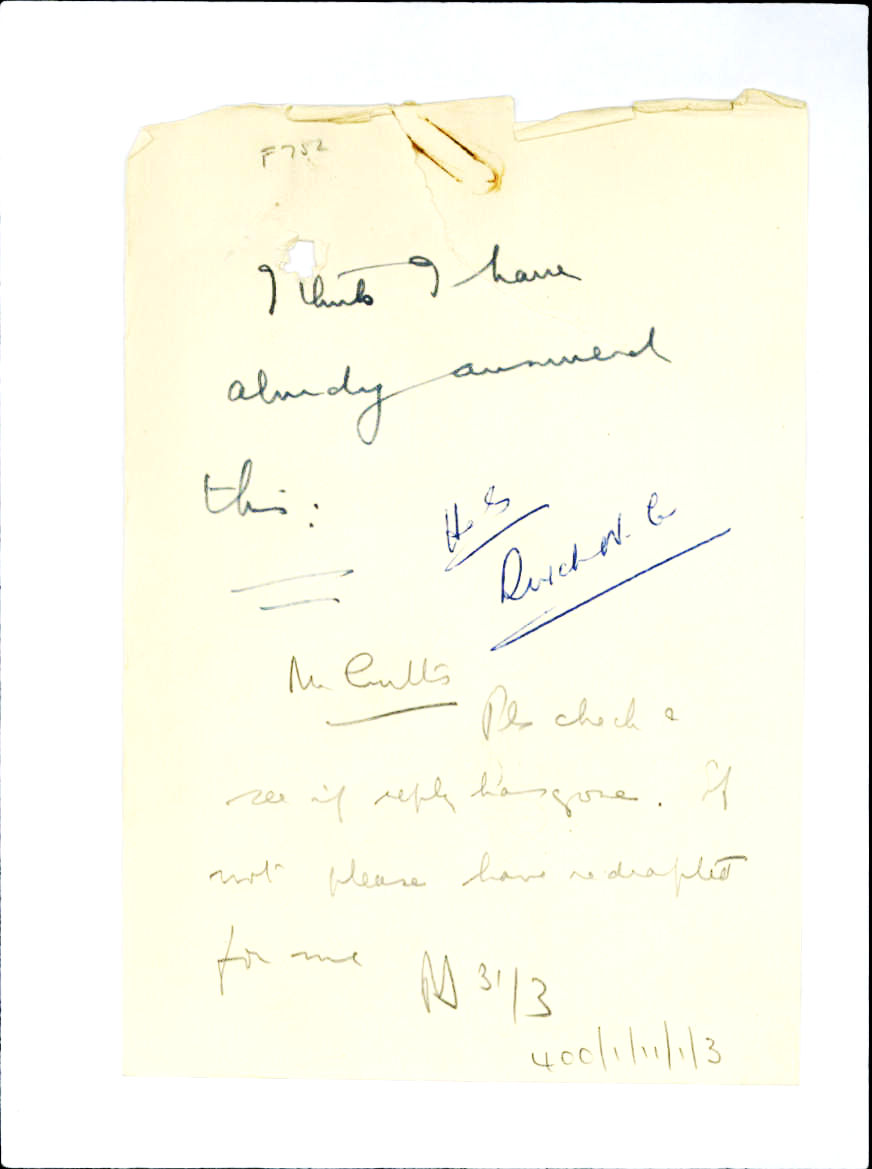 F752
I think I have
already answered
this:
Mr Cutts
Pls check &
see if reply has gone. If
not please have redrafted
for me
31/3
400/1/11/1/3